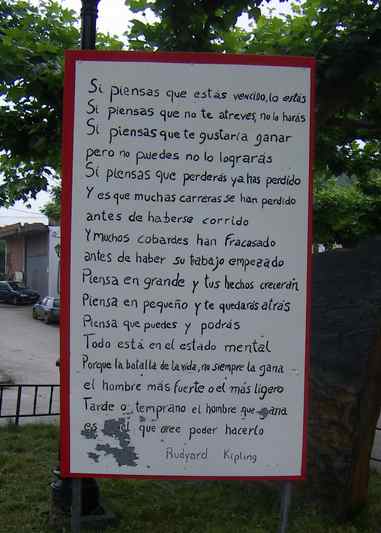 Si piensas que estás vencido, lo estás
Si piensas que no te atreves, no lo harás
Si piensas que te gustaría ganar
pero no puedes no lo lograrás
Si piensas que perderás ya has perdido
Y es que muchas carreras se han perdido
antes de haberse corrido
Y muchos cobardes han fracasado
antes de haber su trabajo empezado
Piensa en grande y tus hechos crecerán
Piensa en pequeño y te quedarás atrás
Piensa que puedes y podrás
Todo está en el estado mental
Porque la batalla de la vida, no siempre la gana
el hombre más fuerte o el más ligero
Tarde o temprano el hombre que gana
es que cree poder hacerlo
Rudyard Kipling